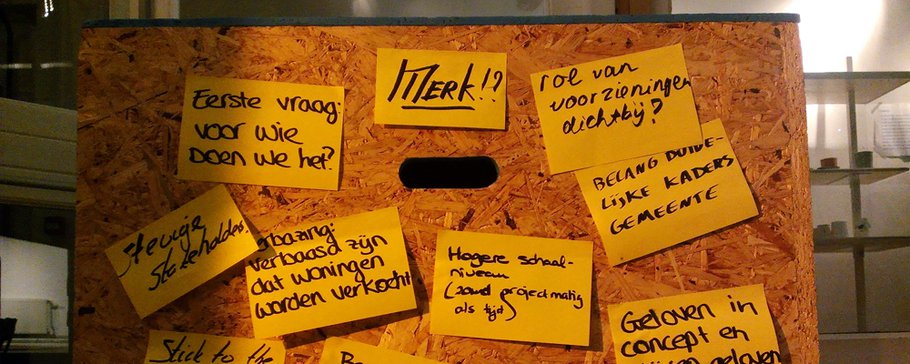 Eerste vraag:
voor wie
Doen we het?
MERK!?
rol van
voorzieningen
dichtbij?
BELANG DUIDE-
LIJKE KADERS
GEMEENTE
Stevige
Stakeholders
verbaasd zijn
dat woningen
worden verkocht
Hogere schaal-
niveau
projectmatig
als tijd)
Geloven in
concept en
geloven
Stick to the